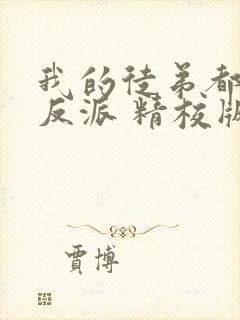 我的徒弟都
反派 精校版
賈博